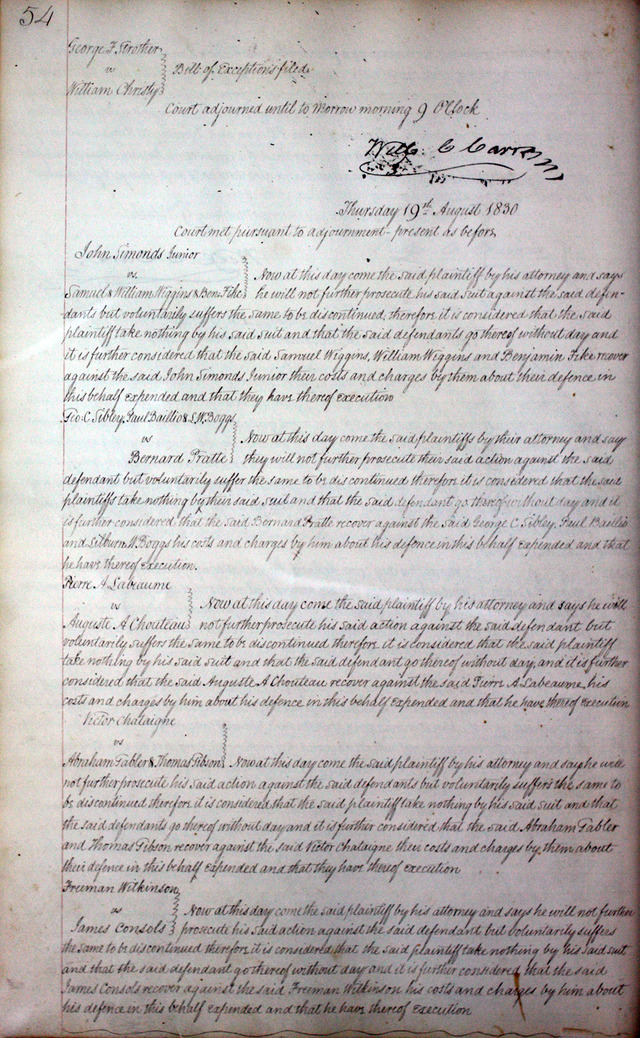 54
George F. Strother
vs } Bill of Exceptions filed
William Christy
Court adjourned until to Morrow morning 9 O'Clock
Will: C Carr
Thursday 19th August 1830
Court met pursuant to adjournment present as before
John Simonds Junior
vs. } Now at this day come the said plaintiff by his attorney and says
Samuel & William Wiggins & Ben. Fike he will not further prosecute his said suit against the said defen-
dants but voluntarily suffers the same to be discontinued, therefore it is considered that the said
plaintiff take nothing by his said suit and that the said defendants go thereof without day and
it is further considered that the said Samuel Wiggins, William Wiggins and Benjamin Fike recover
against the said John Simonds Junior their costs and charges by them about their defence in
this behalf expended and that they have thereof execution
Geo. C. Sibley, Paul Baillio & L. W. Boggs
vs } Now at this day come the said plaintiffs by their attorney and say
Bernard Pratte they will not further prosecute their said action against the said
defendant but voluntarily suffer the same to be discontinued therefore it is considered that the said
plaintiffs take nothing by their said suit and that the said defendant go thereof without day and it
is further considered that the said Bernard Pratte recover against the said George C. Sibley, Paul Baillio
and Lilburn W. Boggs his costs and charges by him about his defence in this behalf expended and that
he have thereof execution.
Pierre A. Labeaume
vs } Now at this day come the said plaintiff by his attorney and says he will
Auguste A Chouteau not further prosecute his said action against the said defendant but
voluntarily suffers the same to be discontinued therefore it is considered that the said plaintiff
take nothing by his said suit and that the said defendant go thereof without day, and it is further
considered that the said Auguste A Chouteau recover against the said Pierre A Labeaume his
costs and charges by him about his defence in this behalf expended and that he have thereof execution
Victor Chalaigne
vs
Abraham Fabler & Thomas Gibson } Now at this day come the said plaintiff by his attorney and say he will
not further prosecute his said action against the said defendants but voluntarily suffers the same to
be discontinued therefore it is considered that the said plaintiff take nothing by his said suit and that
the said defendants go thereof without day and it is further considered that the said Abraham Fabler
and Thomas Gibson recover against the said Victor Chalaigne their costs and charges by them about
their defence in this behalf expended and that they have thereof execution
Freeman Wilkinson
vs } Now at this day come the said plaintiff by his attorney and says he will not further
James Consols prosecute his said action against the said defendant but voluntarily suffers
the same to be discontinued therefore it is considered that the said plaintiff take nothing by his said suit
and that the said defendant go thereof without day and it is further considered that the said
James Consols recover against the said Freeman Wilkinson his costs and charges by him about
his defence in this behalf expended and that he have thereof execution